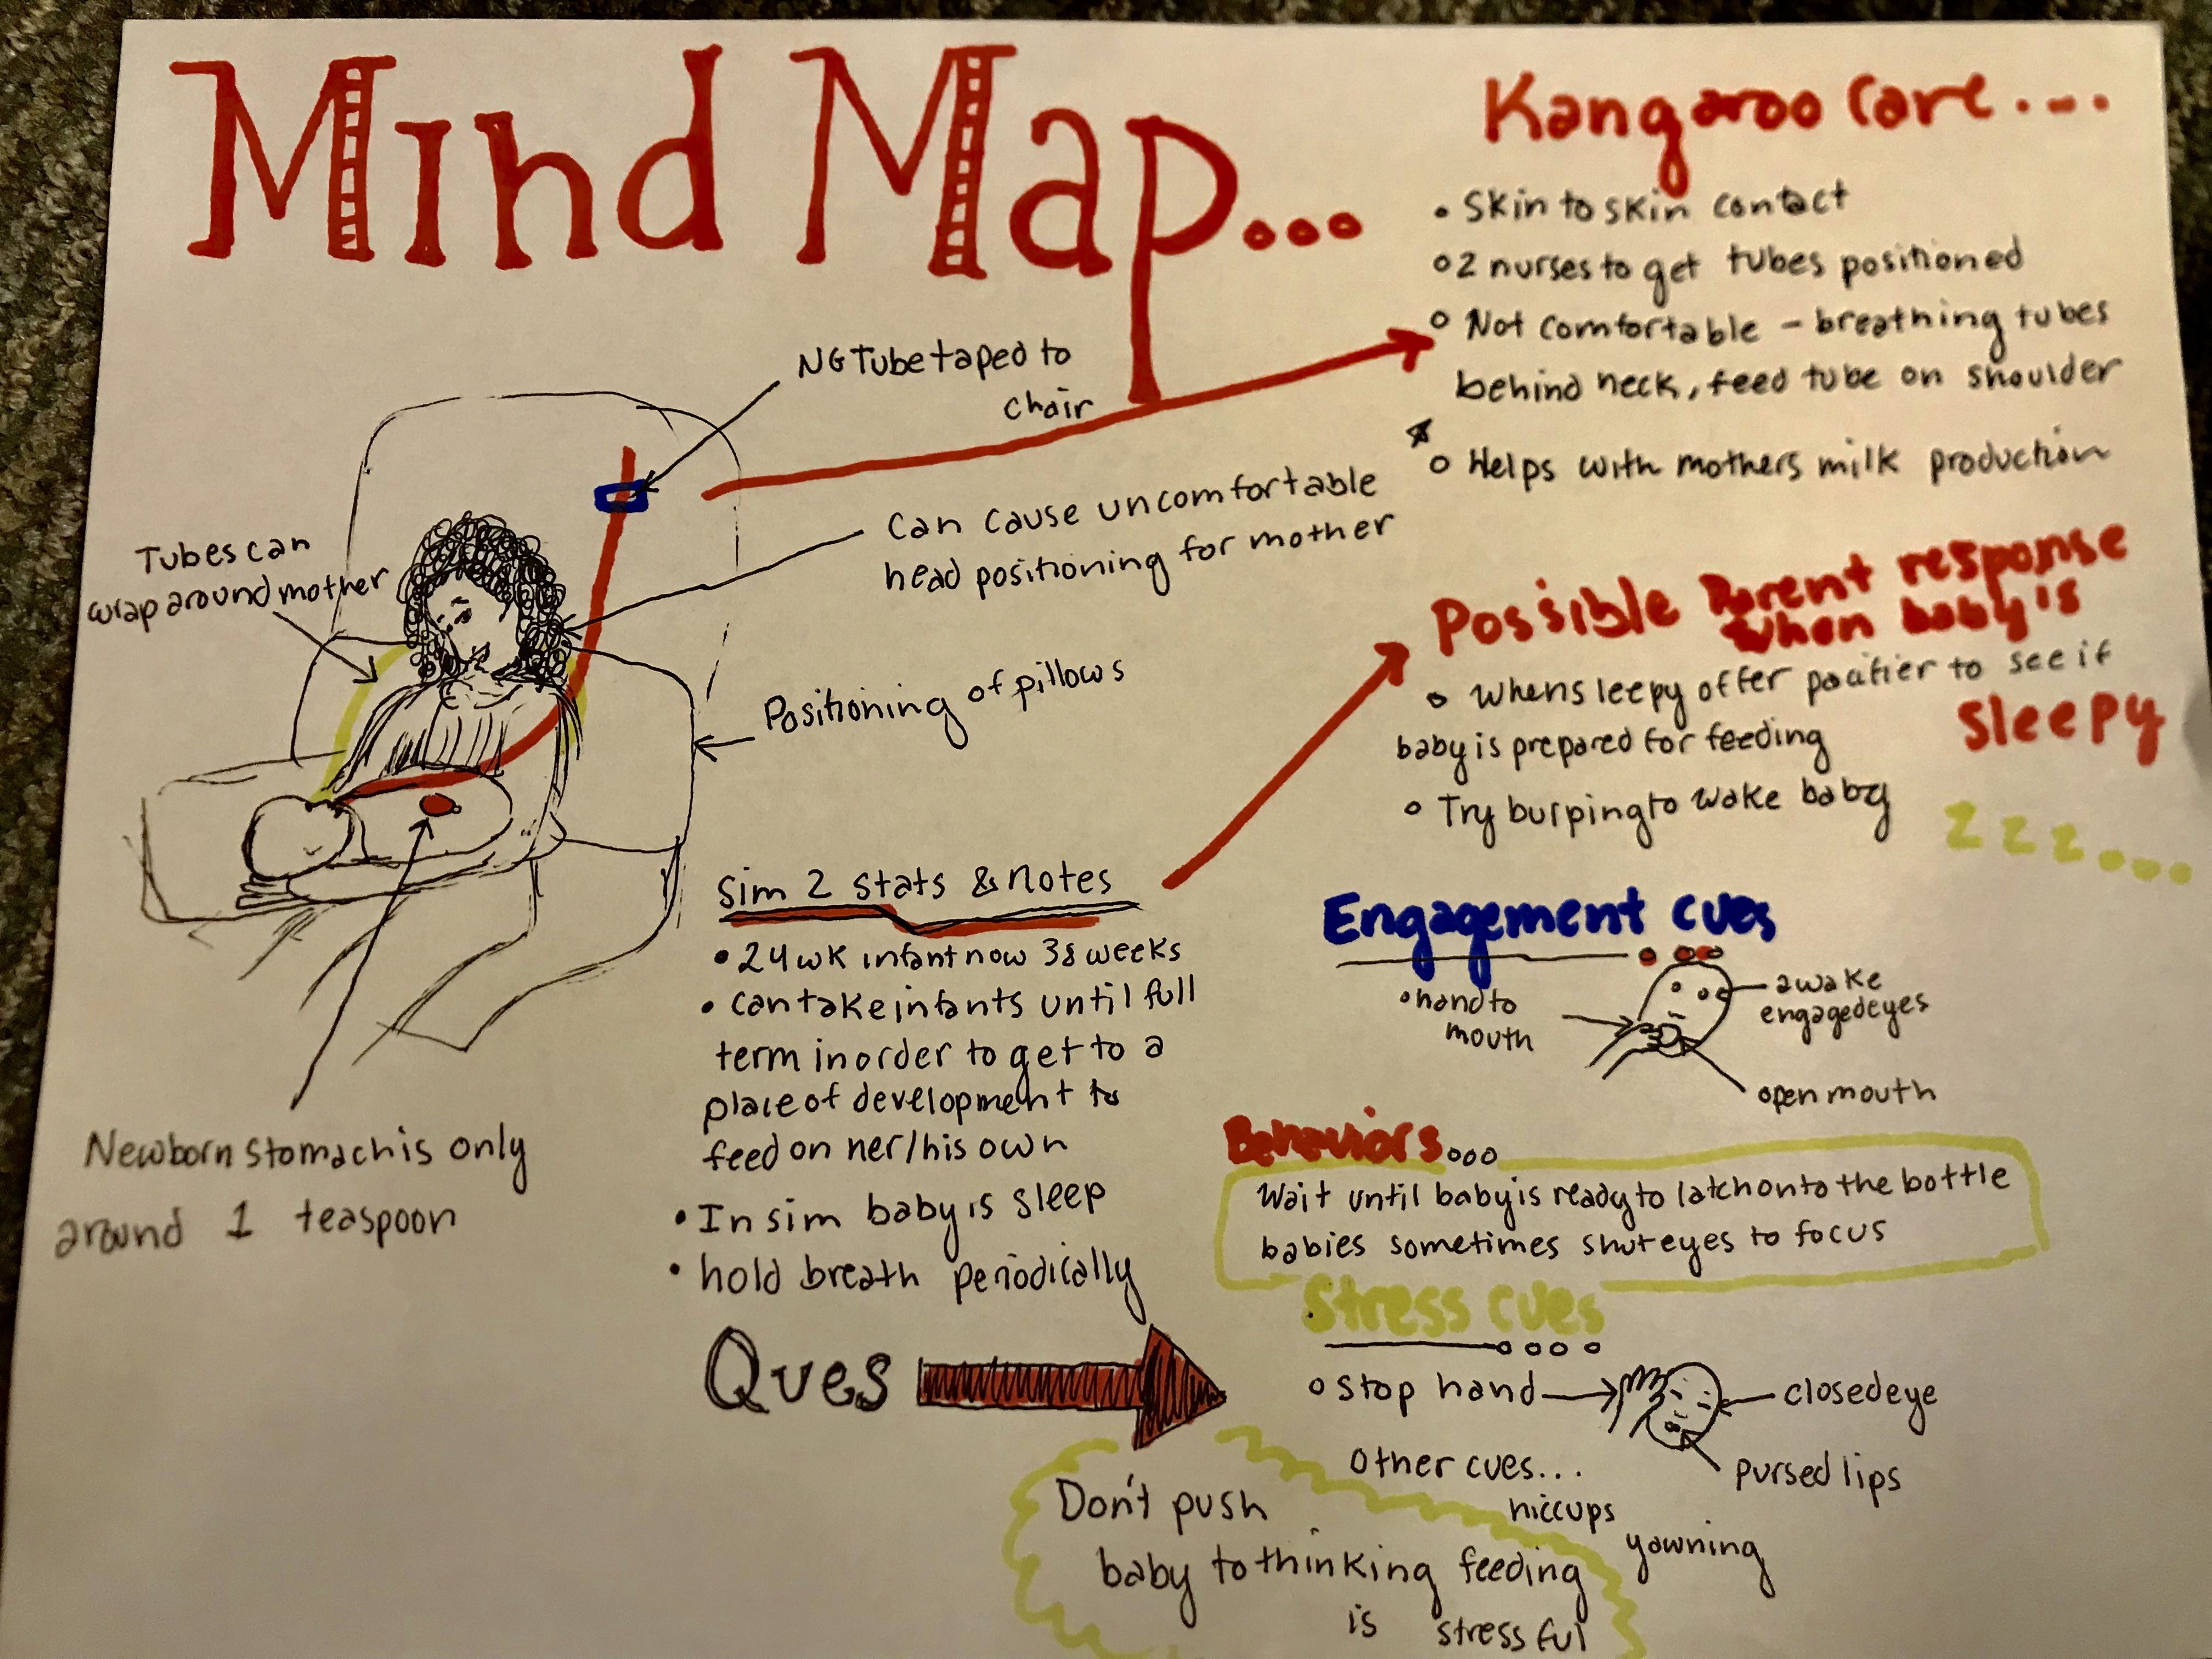 Mind Map...
Kangaroo Care....
• Skin to skin contact
o 2 nurses to get tubes positioned
o Not comfortable - breathing tubes
behind neck, feed tube on shoulder
☆
o Helps with mothers milk production
NG Tube taped to
chair
Can cause uncomfortable
head positioning for mother
Tubes can
wrap around mother
Positioning of pillows
Newborn stomach is only
around 1 teaspoon
Sim 2 stats & notes
• 24 wk infant now 38 weeks
• can take infants until full
term in order to get to a
place of development to
feed on her/his own
• In sim baby is sleep
• hold breath periodically
Ques
Possible Parent response
when baby's
sleepy
zzz...
o When sleepy offer pacifier to see if
baby is prepared for feeding
o Try burping to wake baby
Engagement cues
• hand to
mouth
awake
engaged eyes
open mouth
Behaviors...
Wait until baby is ready to latch onto the bottle
babies sometimes shut eyes to focus
Stress cues
o stop hand
closed eye
pursed lips
Other cues...
hiccups
yawning
Don't push
baby to thinking feeding
is stressful